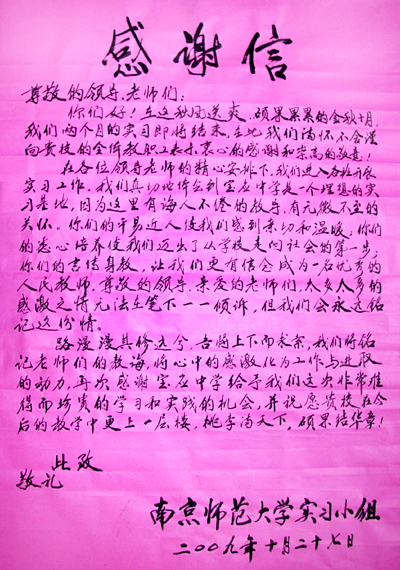 感谢信
尊敬的领导、老师们:
你们好!在这秋风送爽、硕果累累的金秋十月,
我们两个月的实习即将结束,在此我们满怀不舍谨
向贵校的全体教职工表示衷心的感谢和崇高的敬意!
在各位领导老师的精心安排下,我们进入各班开展
实习工作。我们真切地体会到宝应中学是一个理想的实
习基地,因为这里有诲人不倦的教导,有无微不至的
关怀。你们的平易近人使我们感到亲切和温暖,你们
的悉心培养使我们迈出了从学校走向社会的第一步,
你们的言传身教,让我们更有信念成为一名优秀的
人民教师。尊敬的领导、亲爱的老师们,太多太多的
感激之情无法在笔下一一倾诉,但我们会永远铭
记这份情。
路漫漫其修远兮,吾将上下而求索,我们将铭
记老师们的教诲,将心中的感激化为工作与进取
的动力,再次感谢宝应中学给予我们这次非常难
得而珍贵的学习和实践的机会,并祝愿贵校在今
后的教学中更上一层楼,桃李满天下,硕果结华章!
此致
敬礼
南京师范大学实习小组
二00九年十月二十七日